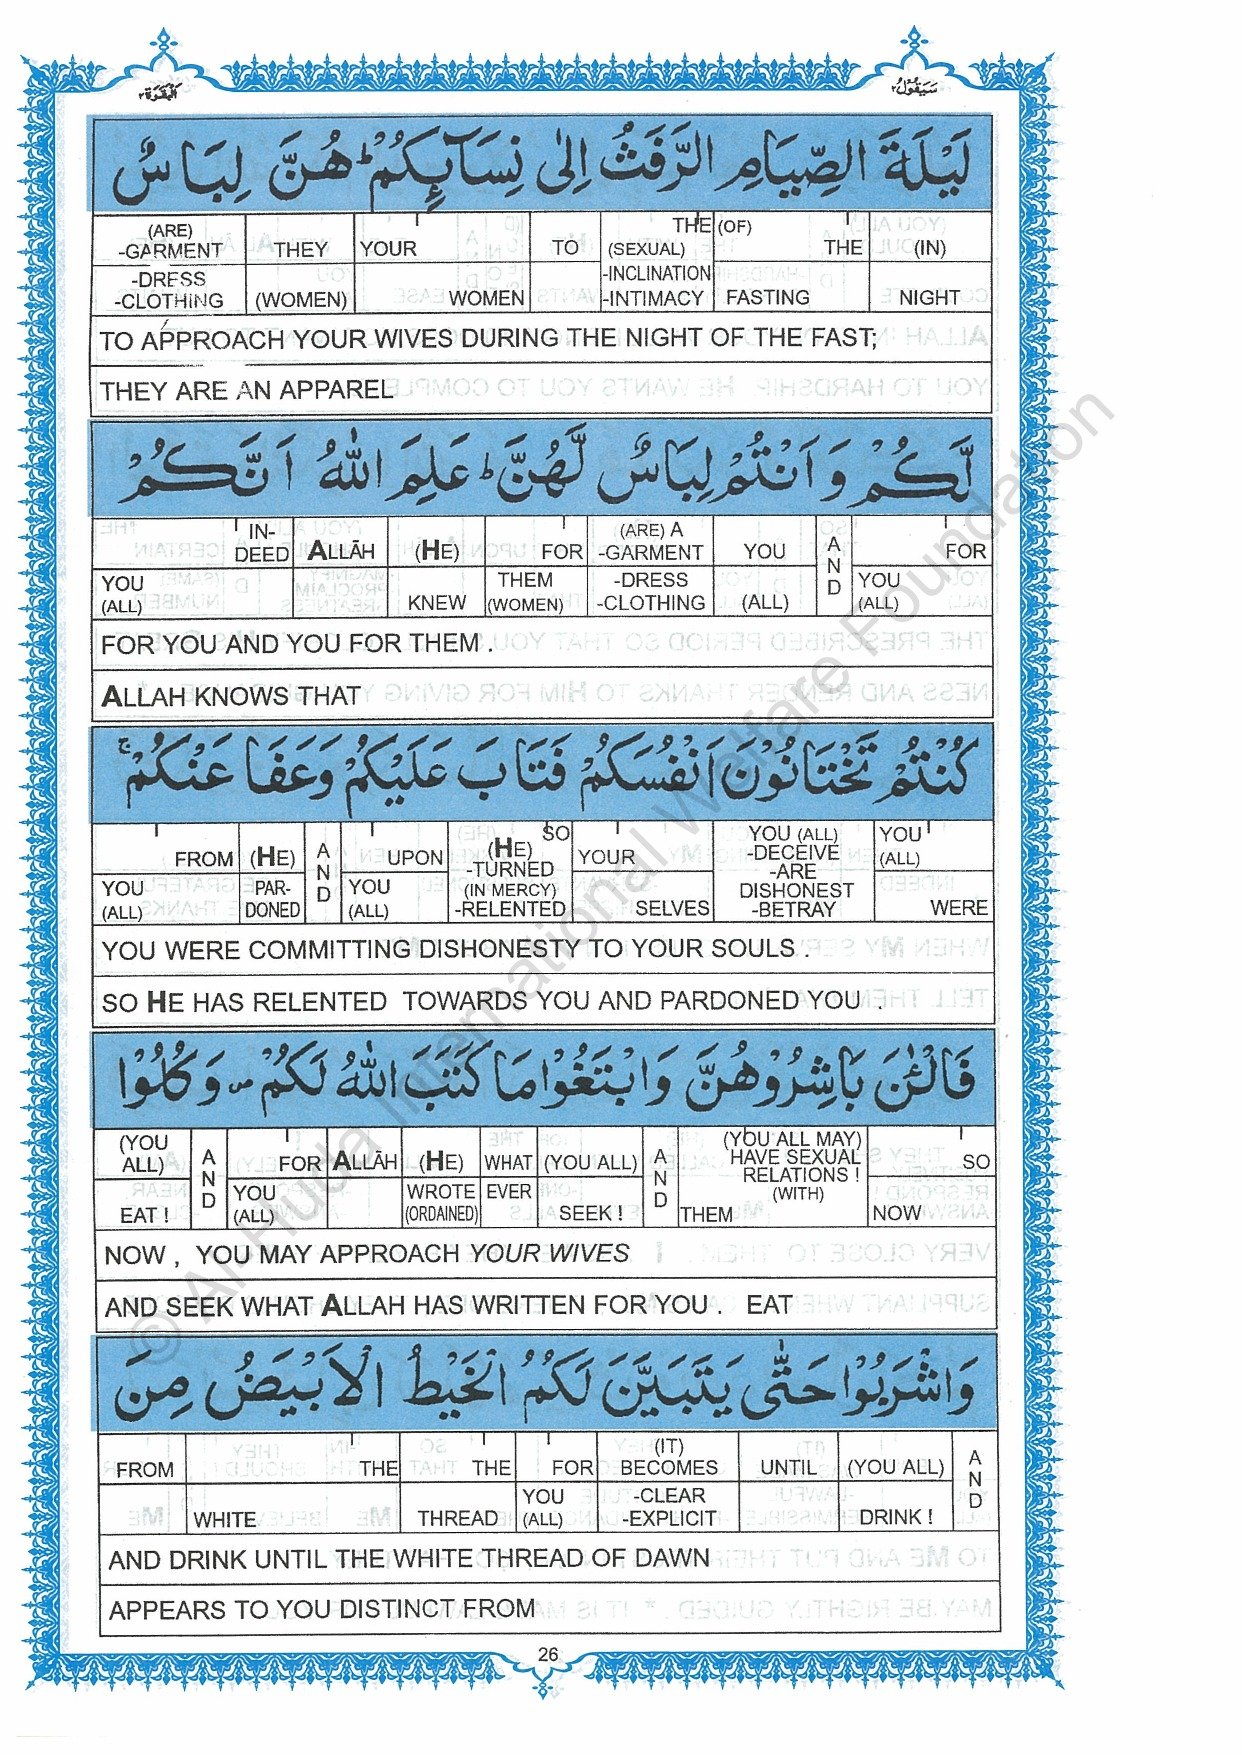 البقرة ٢
سيقول ٢
لَيْلَةَ الصِّيَامِ الرَّفَثُ إِلٰى نِسَآئِكُمْ ؕ هُنَّ لِبَاسٌ
(ARE) -GARMENT THEY YOUR TO THE (SEXUAL) (OF) THE (IN)
-DRESS -CLOTHING (WOMEN) WOMEN -INCLINATION -INTIMACY FASTING NIGHT
TO APPROACH YOUR WIVES DURING THE NIGHT OF THE FAST;
THEY ARE AN APPAREL
لَّكُمْ وَ اَنْتُمْ لِبَاسٌ لَّهُنَّ ؕ عَلِمَ اللّٰهُ اَنَّكُمْ
IN-DEED ALLĀH (HE) FOR (ARE) A -GARMENT YOU AND FOR
YOU (ALL) KNEW THEM (WOMEN) -DRESS -CLOTHING (ALL) YOU (ALL)
FOR YOU AND YOU FOR THEM .
ALLAH KNOWS THAT
كُنْتُمْ تَخْتَانُوْنَ اَنْفُسَكُمْ فَتَابَ عَلَيْكُمْ وَعَفَا عَنْكُمْ ۚ
FROM (HE) AND UPON SO (HE) -TURNED YOUR YOU (ALL) -DECEIVE YOU (ALL)
YOU (ALL) PAR-DONED YOU (ALL) (IN MERCY) -RELENTED SELVES -ARE DISHONEST -BETRAY WERE
YOU WERE COMMITTING DISHONESTY TO YOUR SOULS .
SO HE HAS RELENTED TOWARDS YOU AND PARDONED YOU .
فَالْـٰٔنَ بَاشِرُوْهُنَّ وَ ابْتَغُوْا مَا كَتَبَ اللّٰهُ لَكُمْ ۪ وَ كُلُوْا
(YOU ALL) AND FOR ALLĀH (HE) WHAT (YOU ALL) AND (YOU ALL MAY) HAVE SEXUAL RELATIONS ! (WITH) SO
EAT ! YOU (ALL) WROTE (ORDAINED) EVER SEEK ! THEM NOW
NOW , YOU MAY APPROACH YOUR WIVES
AND SEEK WHAT ALLAH HAS WRITTEN FOR YOU . EAT
وَاشْرَبُوْا حَتّٰى يَتَبَيَّنَ لَكُمُ الْخَيْطُ الْاَبْيَضُ مِنَ
FROM THE THE FOR (IT) BECOMES UNTIL (YOU ALL) AND
WHITE THREAD YOU (ALL) -CLEAR -EXPLICIT DRINK !
AND DRINK UNTIL THE WHITE THREAD OF DAWN
APPEARS TO YOU DISTINCT FROM
26
© Al-Huda International Welfare Foundation